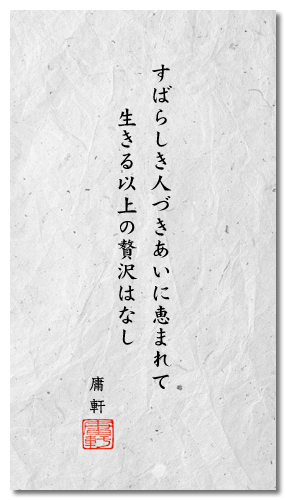 すばらしき人づきあいに恵まれて
生きる以上の贅沢はなし
庸軒